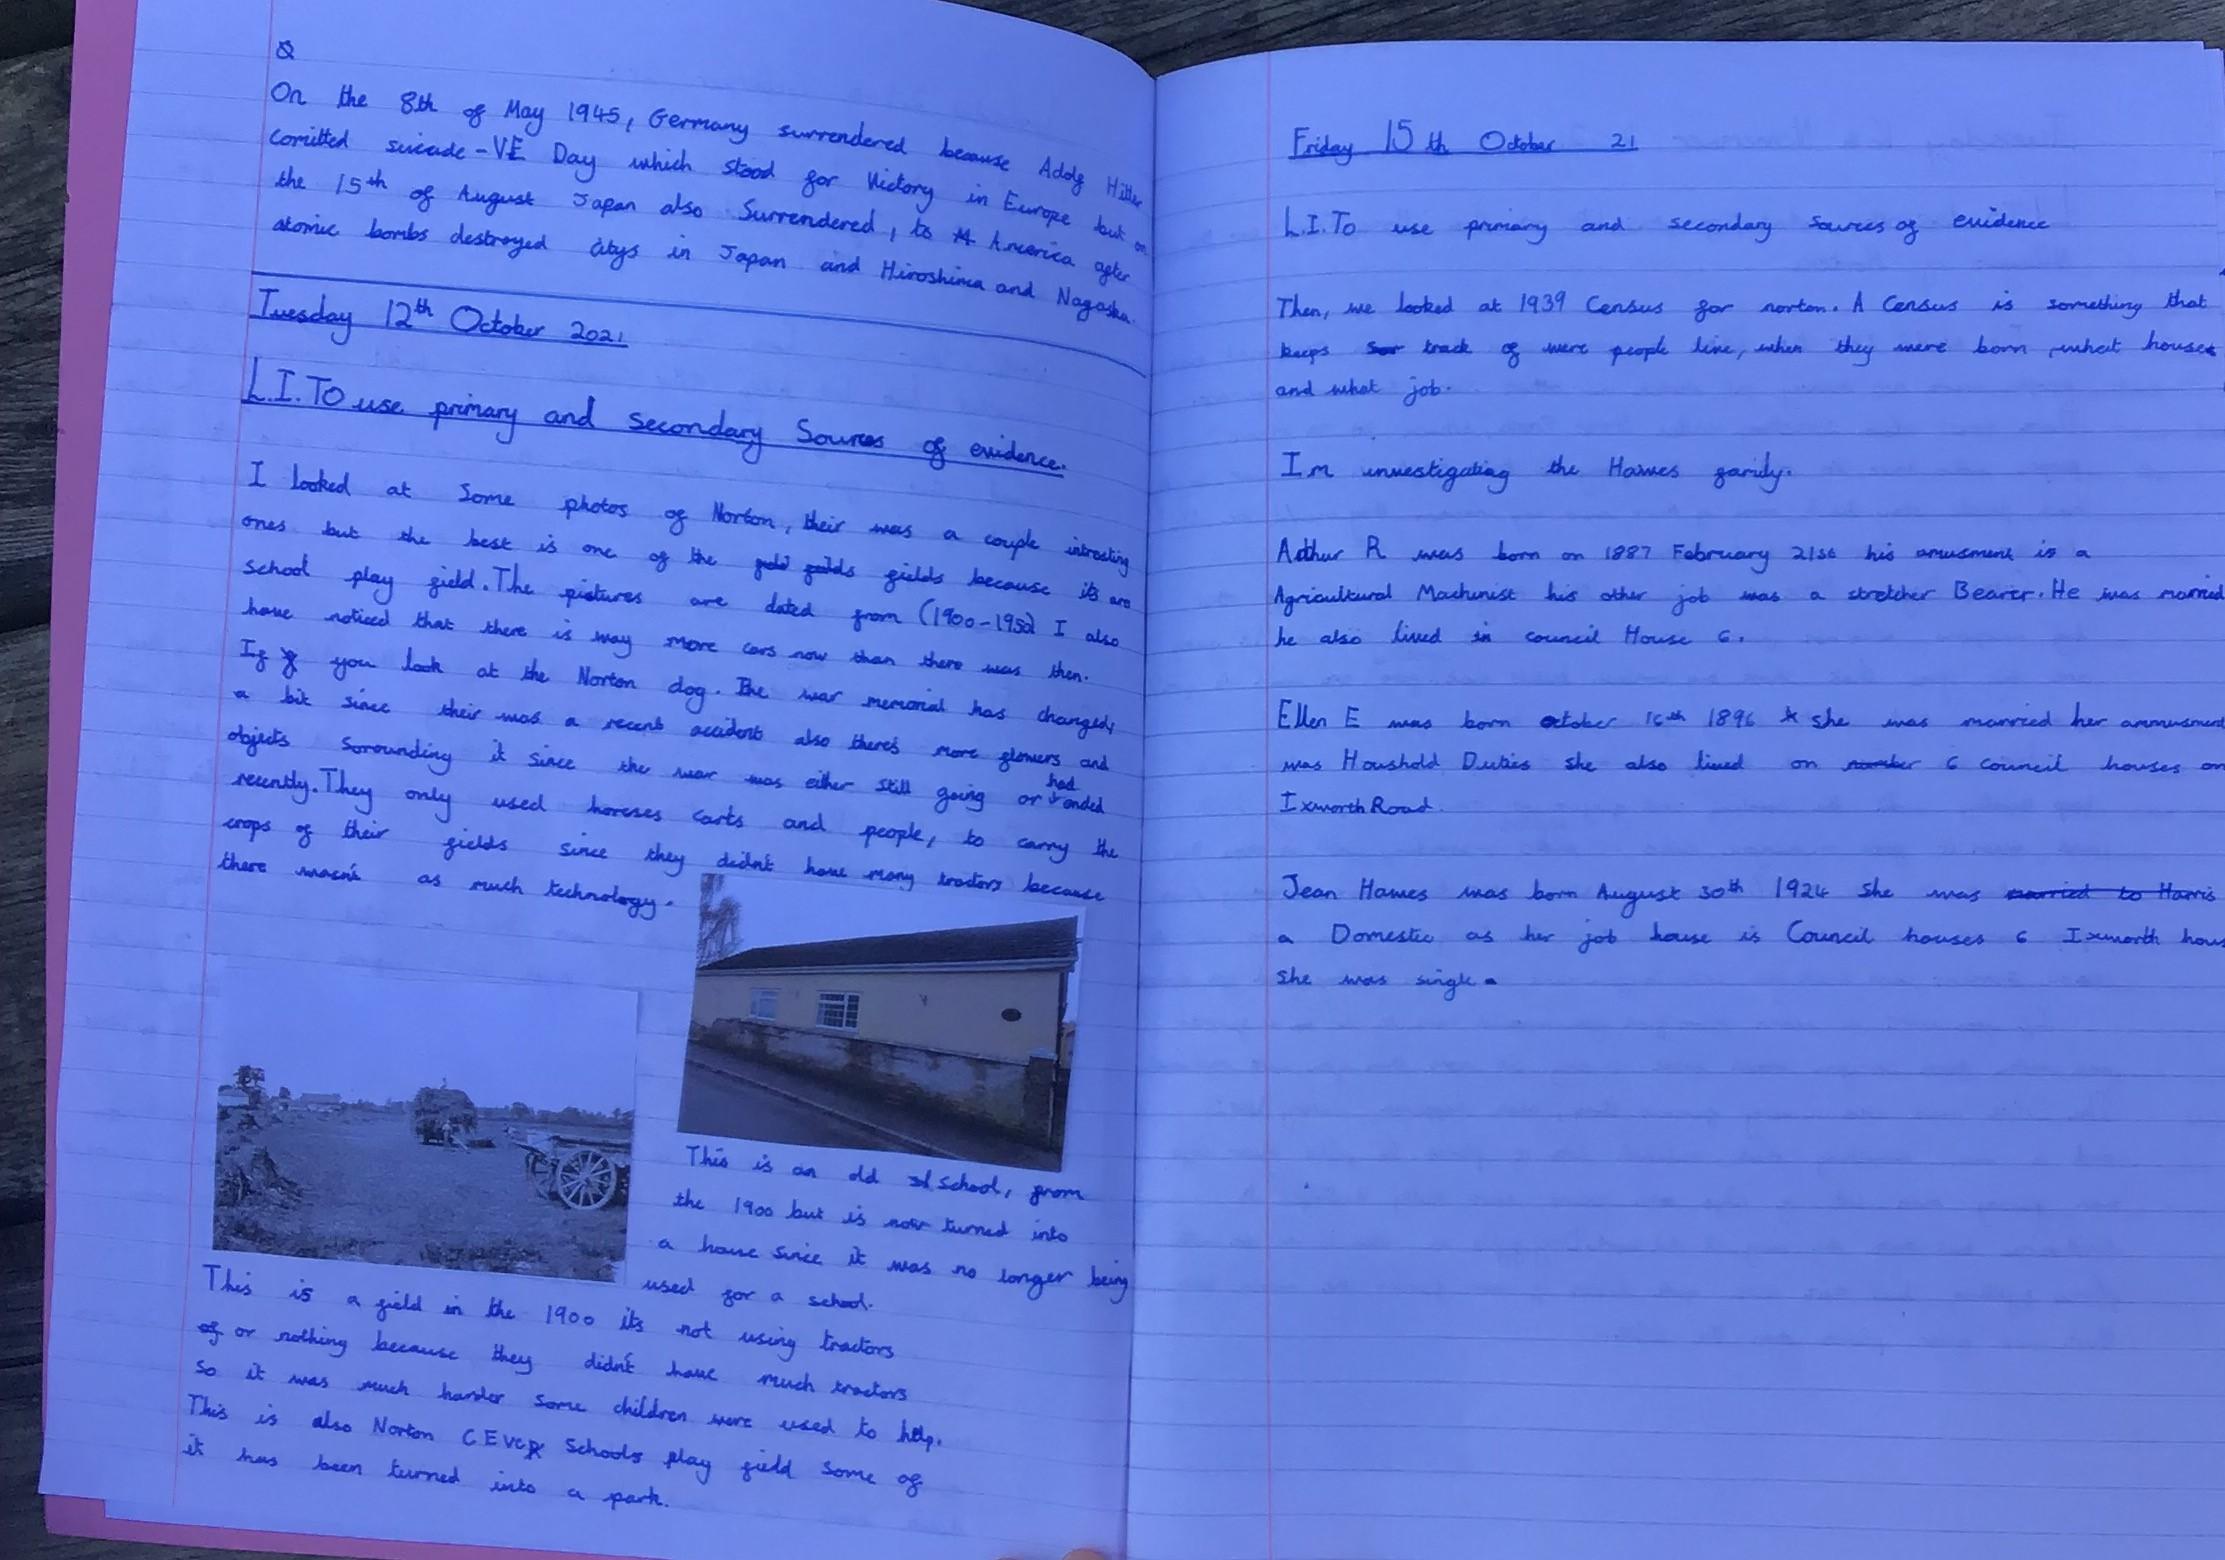 On the 8th of May 1945, Germany surrendered because Adolf Hitler
comitted suicade - VE Day which stood for Victory in Europe but on
the 15th of August Japan also Surrendered, to America after
atomic bombs destroyed citys in Japan and Hiroshima and Nagaska.
Tuesday 12th October 2021
L.I. To use primary and secondary Sources of evidence.
I looked at some photos of Norton, their was a couple intresting
ones but the best is one of the fields because its are
school play field. The pictures are dated from (1900-1950) I also
have noticed that there is way more cars now than there was then.
If you look at the Norton dog. The war memorial has changed,
a bit since their was a recent accident also there's more flowers and
objects sorounding it since the war was either still going or had ended
recently. They only used horeses carts and people, to carry the
crops of their fields since they didn't have many tractors because
there wasn't as much technology.
This is an old school, from
the 1900 but is now turned into
a house since it was no longer being
used for a school.
This is a field in the 1900 its not using tractors
or nothing because they didn't have much tractors
so it was much harder some children were used to help.
This is also Norton CEVCP Schools play field some of
it has been turned into a park.
Friday 15th October 21
L.I. To use primary and secondary sources of evidence
Then, we looked at 1939 Census for norton. A Census is something that
keeps track of were people live, when they were born, what houses
and what job.
Im unvestigating the Hawes family.
Arthur R was born on 1887 February 21st his amusment is a
Agricultural Machinist his other job was a stretcher Bearer. He was married
he also lived in council House 6.
Ellen E was born october 16th 1896 she was married her ammusment
was Houshold Duties she also lived on number 6 council houses on
Ixworth Road.
Jean Hawes was born August 30th 1924 she was married to Harris
a Domestic as her job house is Council houses 6 Ixworth hous
she was single.